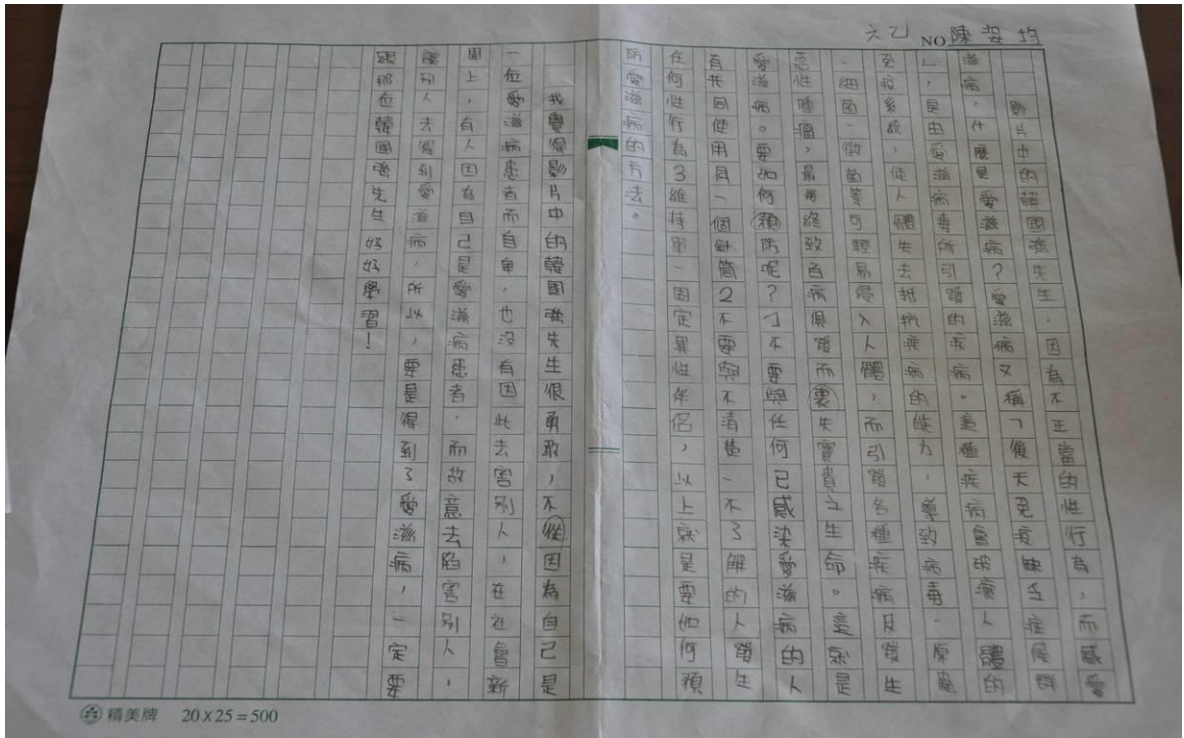 六乙 NO 陳姿均
影片中的韓國強先生，因為不正當的性行為，而感愛
滋病，什麼是愛滋病？愛滋病又稱「後天免疫缺乏症候群
」，是由愛滋病毒所引發的疾病。這種疾病會破壞人體的
免疫系統，使人體失去抵抗疾病的能力，導致病毒、原蟲
、細菌、黴菌等可輕易侵入人體，而引發各種疾病及發生
惡性腫瘤，最後終致各病俱發而喪失寶貴之生命。這就是
愛滋病。要如何預防呢？1不要與任何已感染愛滋病的人
有共同使用同一個針筒2不要與不清楚、不了解的人發生
任何性行為3維持單一固定異性伴侶，以上就是要如何預
防愛滋病的方法。
我覺得影片中的韓國強先生很勇敢，不從因為自己是
一位愛滋病患者而自卑，也沒有因此去害別人，在社會新
聞上，有人因為自己是愛滋病患者，而故意去陷害別人，
讓別人去得到愛滋病，所以，要是得到了愛滋病，一定要
跟那位韓國強先生好好學習！
精美牌 20X25=500